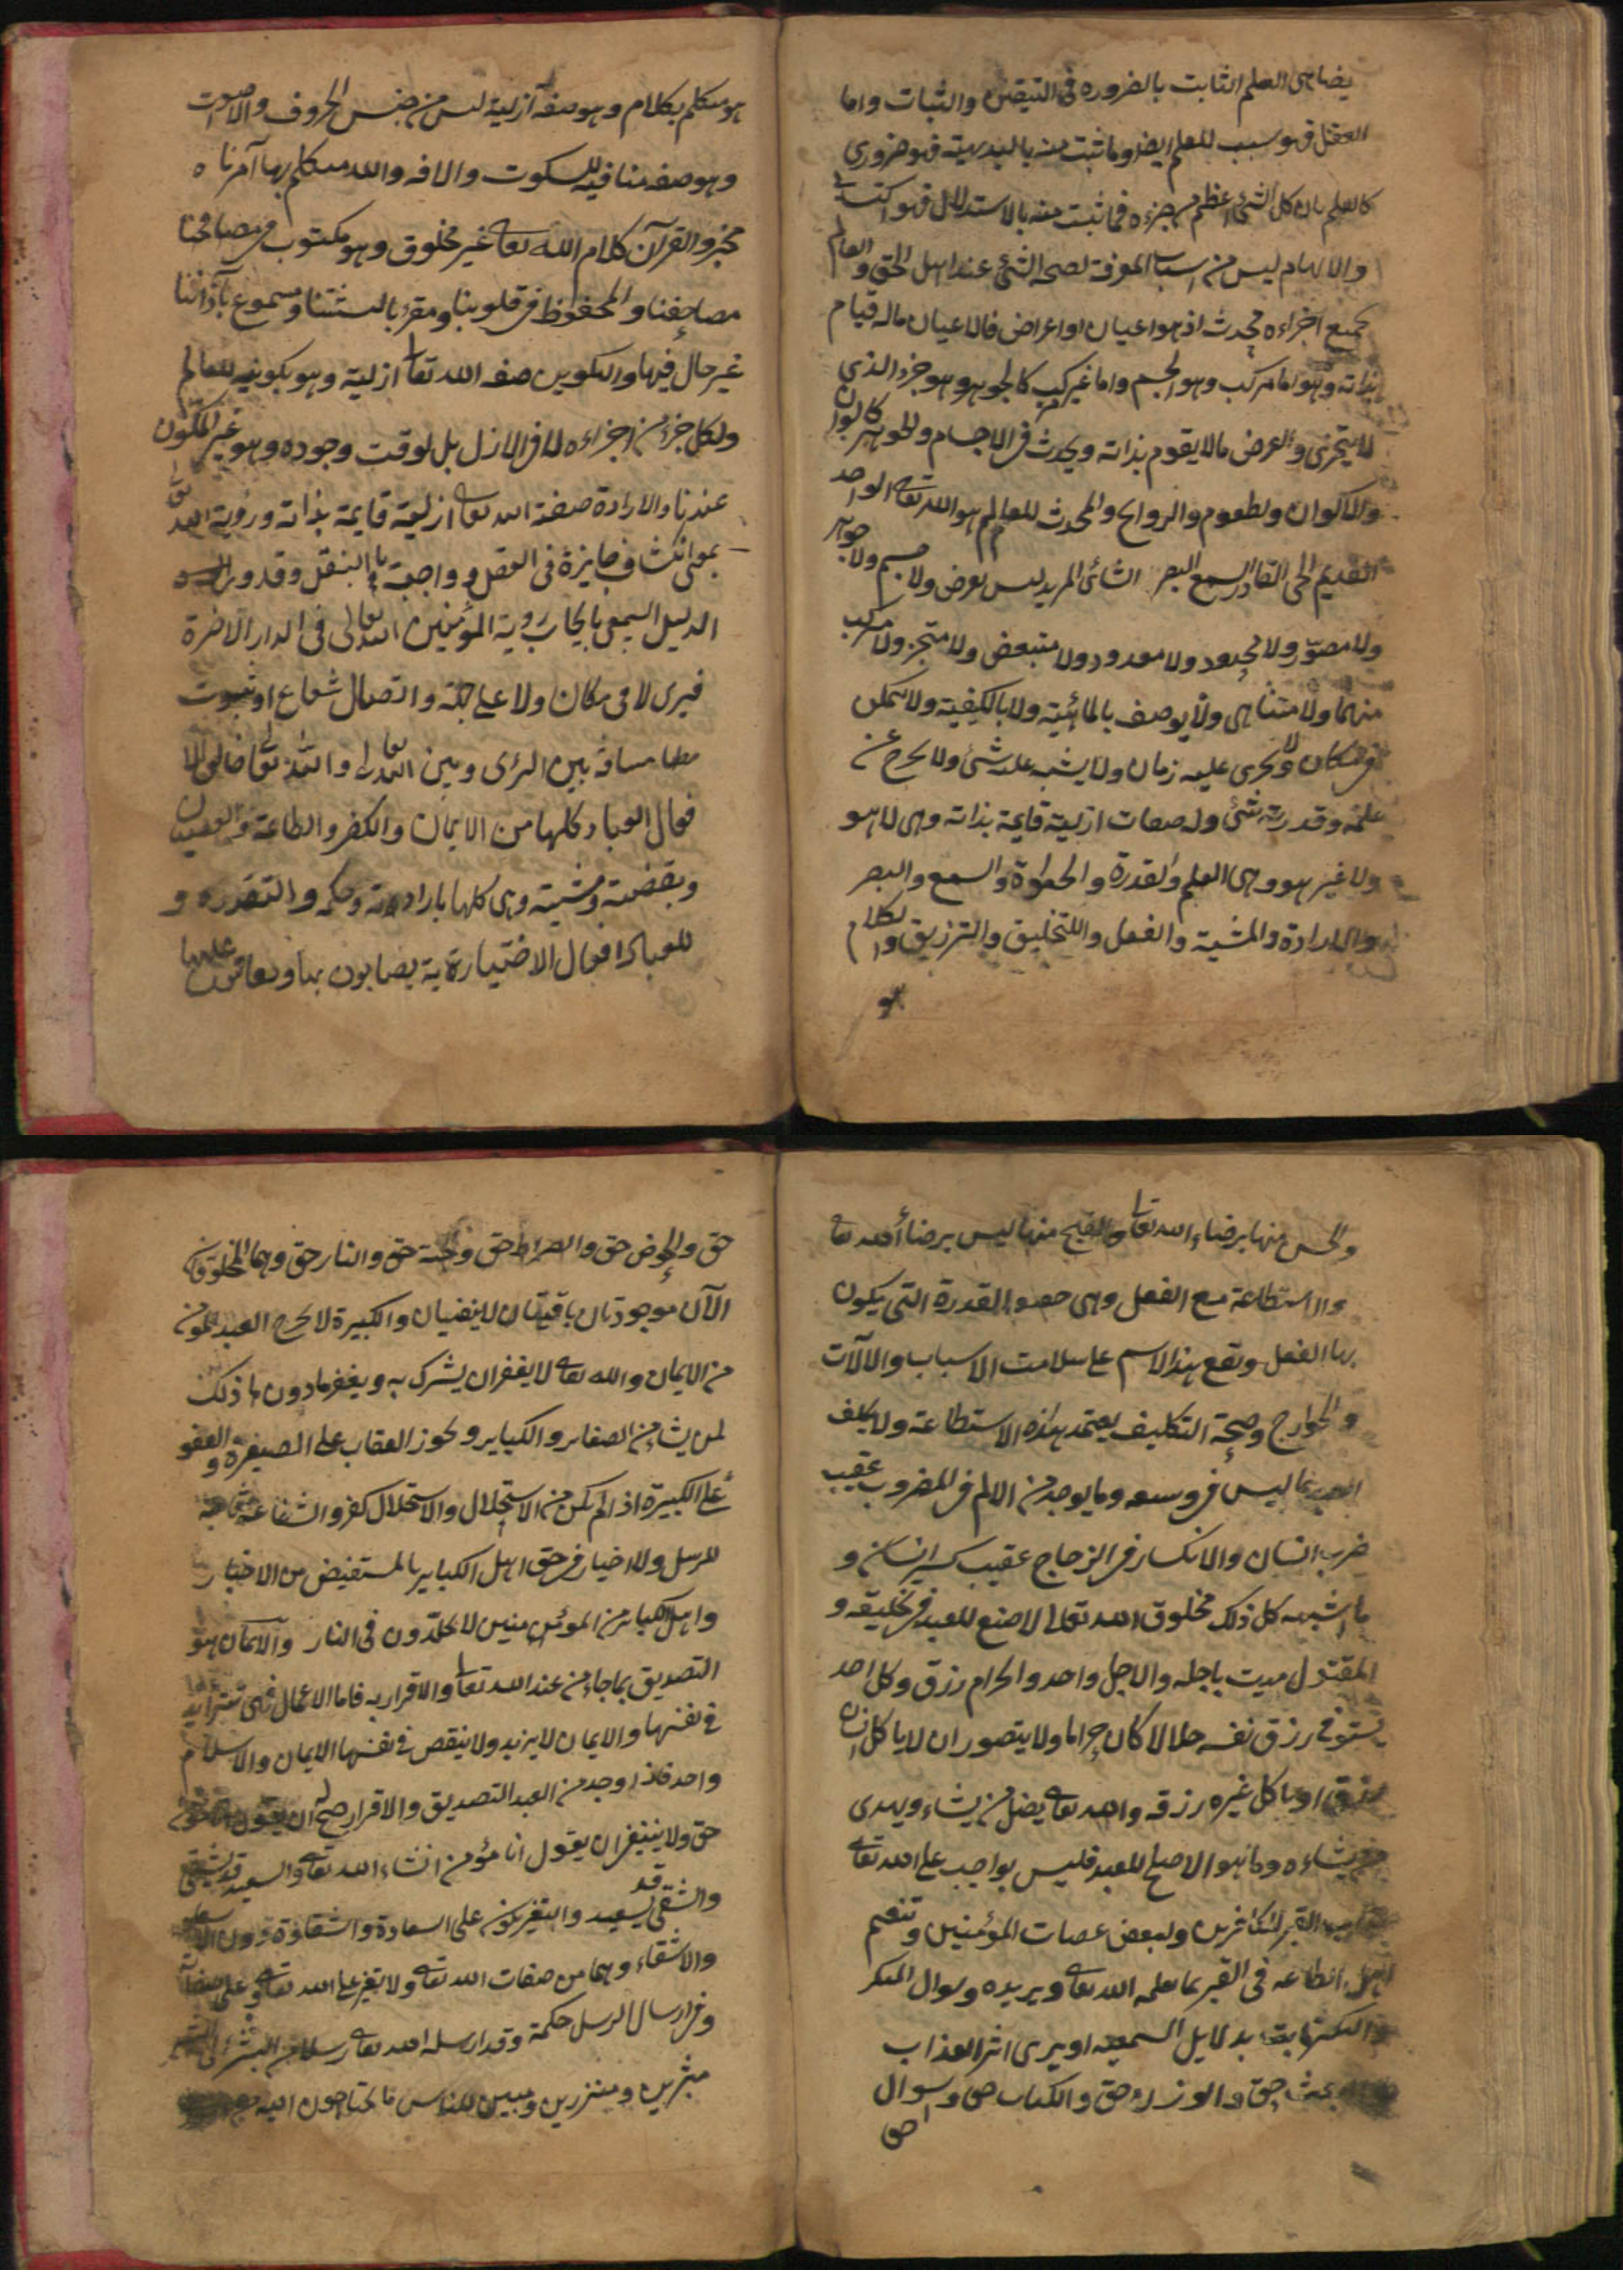 يضاهى العلم الثابت بالضروره فى التيقن والثبات واما
العقل فهو سبب للعلم ايضا وما ثبت منه بالبديهية فهو ضرورى
كالعلم بان كل الشئ اعظم من جزءه فما ثبت منه بالاستدلال فهو اكتسابى
والالهام ليس من اسباب المعرفة لصحه الشئ عند اهل الحق والعالم
بجميع اجزاءه محدث اذ هو اعيان او اعراض فالاعيان ماله قيام
بذاته وهو اما مركب وهو الجسم واما غير مركب كالجوهر وهو جزء الذى
لا يتجزى والعرض مالا يقوم بذاته ويحدث فى الاجسام والجوهر كالالوان
والاكوان والطعوم والروايح والمحدث للعالم هو الله تعالى الواحد
القديم الحى القادر السميع البصر الشائى المريد ليس بعرض ولا جسم ولا جوهر
ولا مصور ولا محدود ولا معدود ولا متبعض ولا متجز ولا مركب
منهما ولا متناهى ولا يوصف بالمائية ولا بالكيفية ولا يتمكن
فى مكان ولا يجرى عليه زمان ولا يشبه شئ ولا يخرج عن
علمه وقدرته شئ وله صفات ازلية قايمة بذاته وهى لا هو
ولا غير هو وهى العلم والقدرة والحيوة والسمع والبصر
والارادة والمشية والفعل والتخليق والترزيق والكلام
هو
هو متكلم بكلام وهو صفة ازلية ليس من جنس الحروف والاصوت
وهو صفه منافيه للسكوت والافه والله متكلم بها آمرناه
مخبر والقرآن كلام الله تعالى غير مخلوق وهو مكتوب فى مصاحفنا
مصاحفنا والمحفوظ فى قلوبنا ومقرء بالسنتنا ومسموع بآذاننا
غير حال فيها والتكوين صفه الله تعالى ازلية وهو تكوينه للعالم
ولكل جزء من اجزاءه لا فى الازل بل لوقت وجوده وهو غير المكون
عندنا والارادة صفة الله تعالى ازلية قايمة بذاته ورؤية الله تعالى
بمعنى انكشاف جايزة فى العقل وواجبة بالنقل وقد ورد
الدليل السمعى بايجاب روية المؤمنين الله تعالى فى الدار الاخرة
فيرى لا فى مكان ولا على جهة واتصال شعاع او ثبوت
مسافة بين الرئ وبين الله تعالى والله تعالى خالق الا
فعال العباد كلها من الايمان والكفر والطاعة والعصيان
وبقضيته ومشيته وهى كلها بارادته وحكمه والتقدره و
للعباد افعال الاختيارية يصابون بها ويعاقبون عليها
والحسن منها برضاء الله تعالى والقبح منها ليس برضاء الله تعالى
والاستطاعة مع الفعل وهى حقيقة القدرة التى يكون
بها الفعل ويقع بهذا الاسم على سلامت الاسباب والالآت
والجوارح وصحة التكليف يعتمد بهذه الاستطاعة ولا يكلف
العبد بما ليس فى وسعه وما يوجد من الالم فى المضروب عقيب
ضرب انسان والانكسار فى الزجاج عقيب كسر انسان و
ما اشبهه كل ذلك مخلوق الله تعالى لا صنع للعبد فى تخليقه و
المقتول ميت باجله والاجل واحد والحرام رزق وكل احد
يستوفى رزق نفسه حلالا كان حراما ولا يتصور ان لا ياكل انسان
رزقه او ياكل غيره رزقه والله تعالى يضل من يشاء ويهدى
من يشاءه وما هو الاصلح للعبد فليس بواجب على الله تعالى
القبر للكافرين ولبعض عصات المؤمنين وتنعيم
اهل الطاعه فى القبر بما يعلمه الله تعالى ويريده وسوال المنكر
والنكير ثابت بدلايل السمعيه او يرى اثر العذاب
والبعث حق والوزن حق والكتاب حق وسوال
حق
حق والحوض حق والصراط حق والجنة حق والنار حق وهما المخلوقتان
الآن موجودتان باقيتان لا يفنيان والكبيرة لا يخرج العبد المومن
من الايمان والله تعالى لا يغفر ان يشرك به ويغفر مادون ذلك
لمن يشاء من الصغاير والكباير ويجوز العقاب على الصغيرة والعفو
على الكبيرة اذا لم يكن من الاستحلال والاستحلال كفر والشفاعة ثابتة
للرسل والاخيار فى حق اهل الكباير بالمستفيض من الاخبار
واهل الكباير من المومنين لا يخلدون فى النار والايمان هو
التصديق بما جاء من عند الله تعالى والاقرار به فاما الاعمال فهى تتزايد
فى نفسها والايمان لا يزيد ولا ينقص فى نفسها الايمان والاسلام
واحد فاذا وجد من العبد التصديق والاقرار صح له ان يقول انا مؤمن
حق ولا ينبغى ان يقول انا مؤمن انشاء الله تعالى والسعيد قد يشقى
والشقى قد يسعيد والتغير يكون على السعادة والشقاوة دون الاسعاد
والاشقاء وهما من صفات الله تعالى ولا تغير على الله تعالى ولا على صفاته
وفى ارسال الرسل حكمة وقد ارسله الله تعالى رسلا من البشر الى البشر
مبشرين ومنذرين ومبين للناس ما يحتاجون اليه